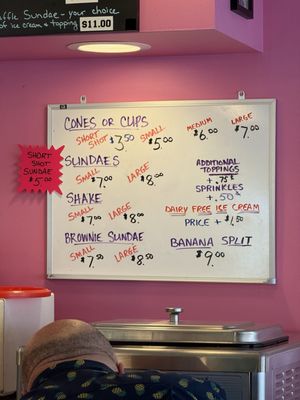 ffle Sundae - your choice
of ice cream & topping $11.00
CONES OR CUPS
SHORT SHOT $3.50 SMALL $5.00 MEDIUM $6.00 LARGE $7.00
SHORT SHOT SUNDAE $5.00
SUNDAES
SMALL $7.00 LARGE $8.00
SHAKE
SMALL $7.00 LARGE $8.00
BROWNIE SUNDAE
SMALL $7.50 LARGE $8.50
ADDITIONAL TOPPINGS
+ .75¢
SPRINKLES
+ .50¢
DAIRY FREE ICE CREAM
PRICE + $1.50
BANANA SPLIT
$9.00